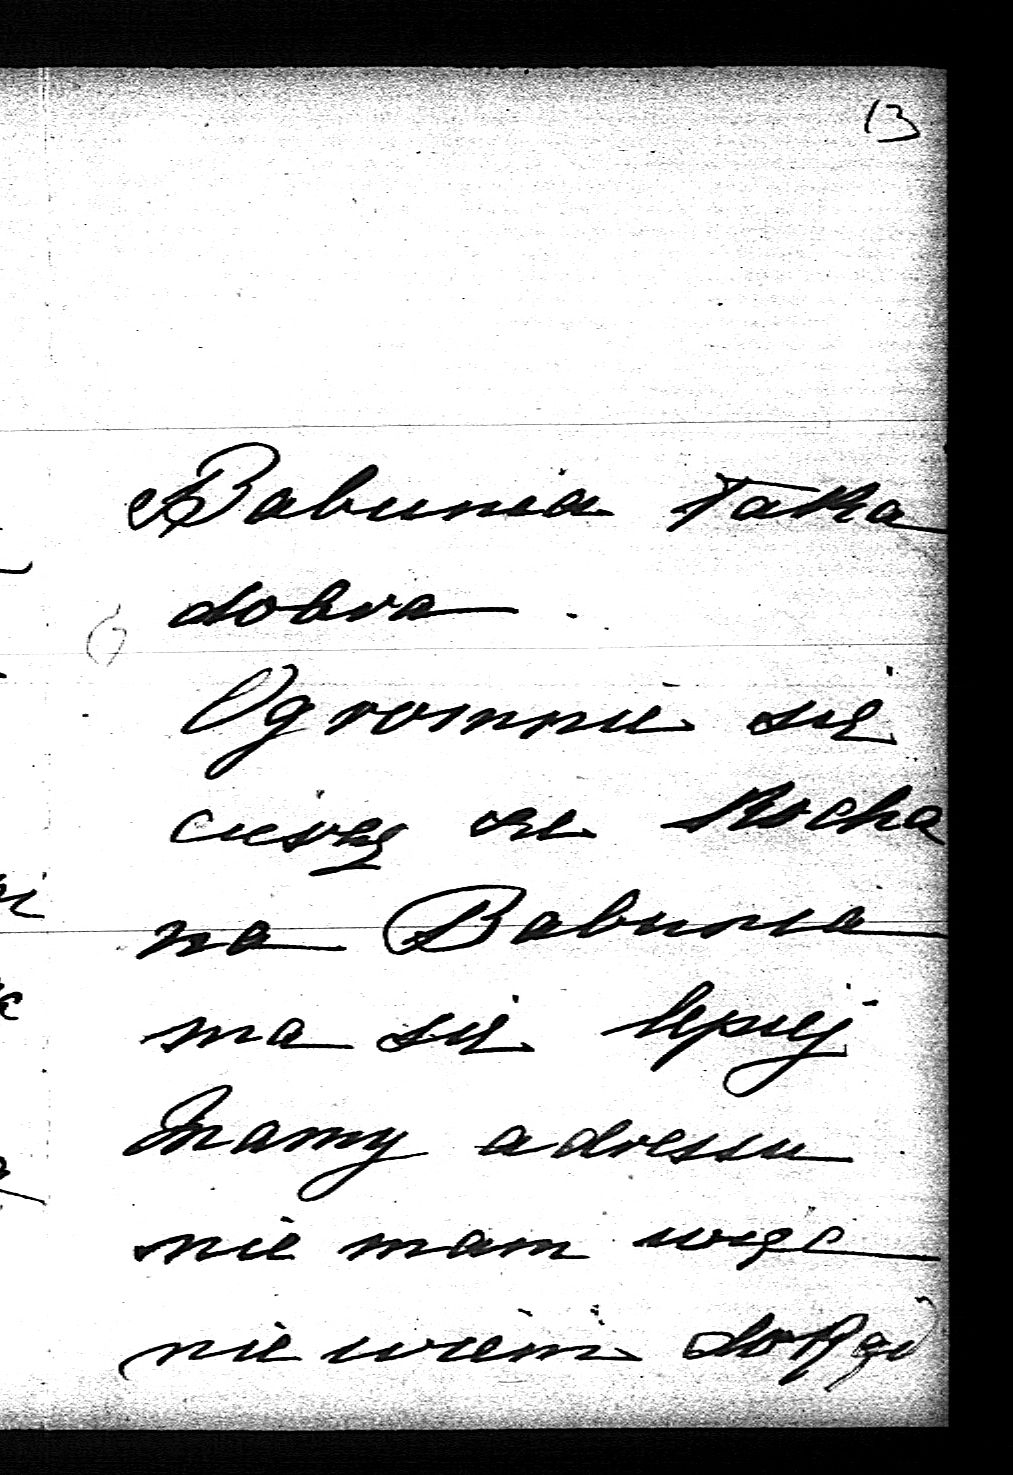 13
Babunia taka
dobra.
Ogromnie się
cieszę że Kocha
na Babunia
ma się lepiej
Mamy adressu
nie mam więc
nie wiem dokąd